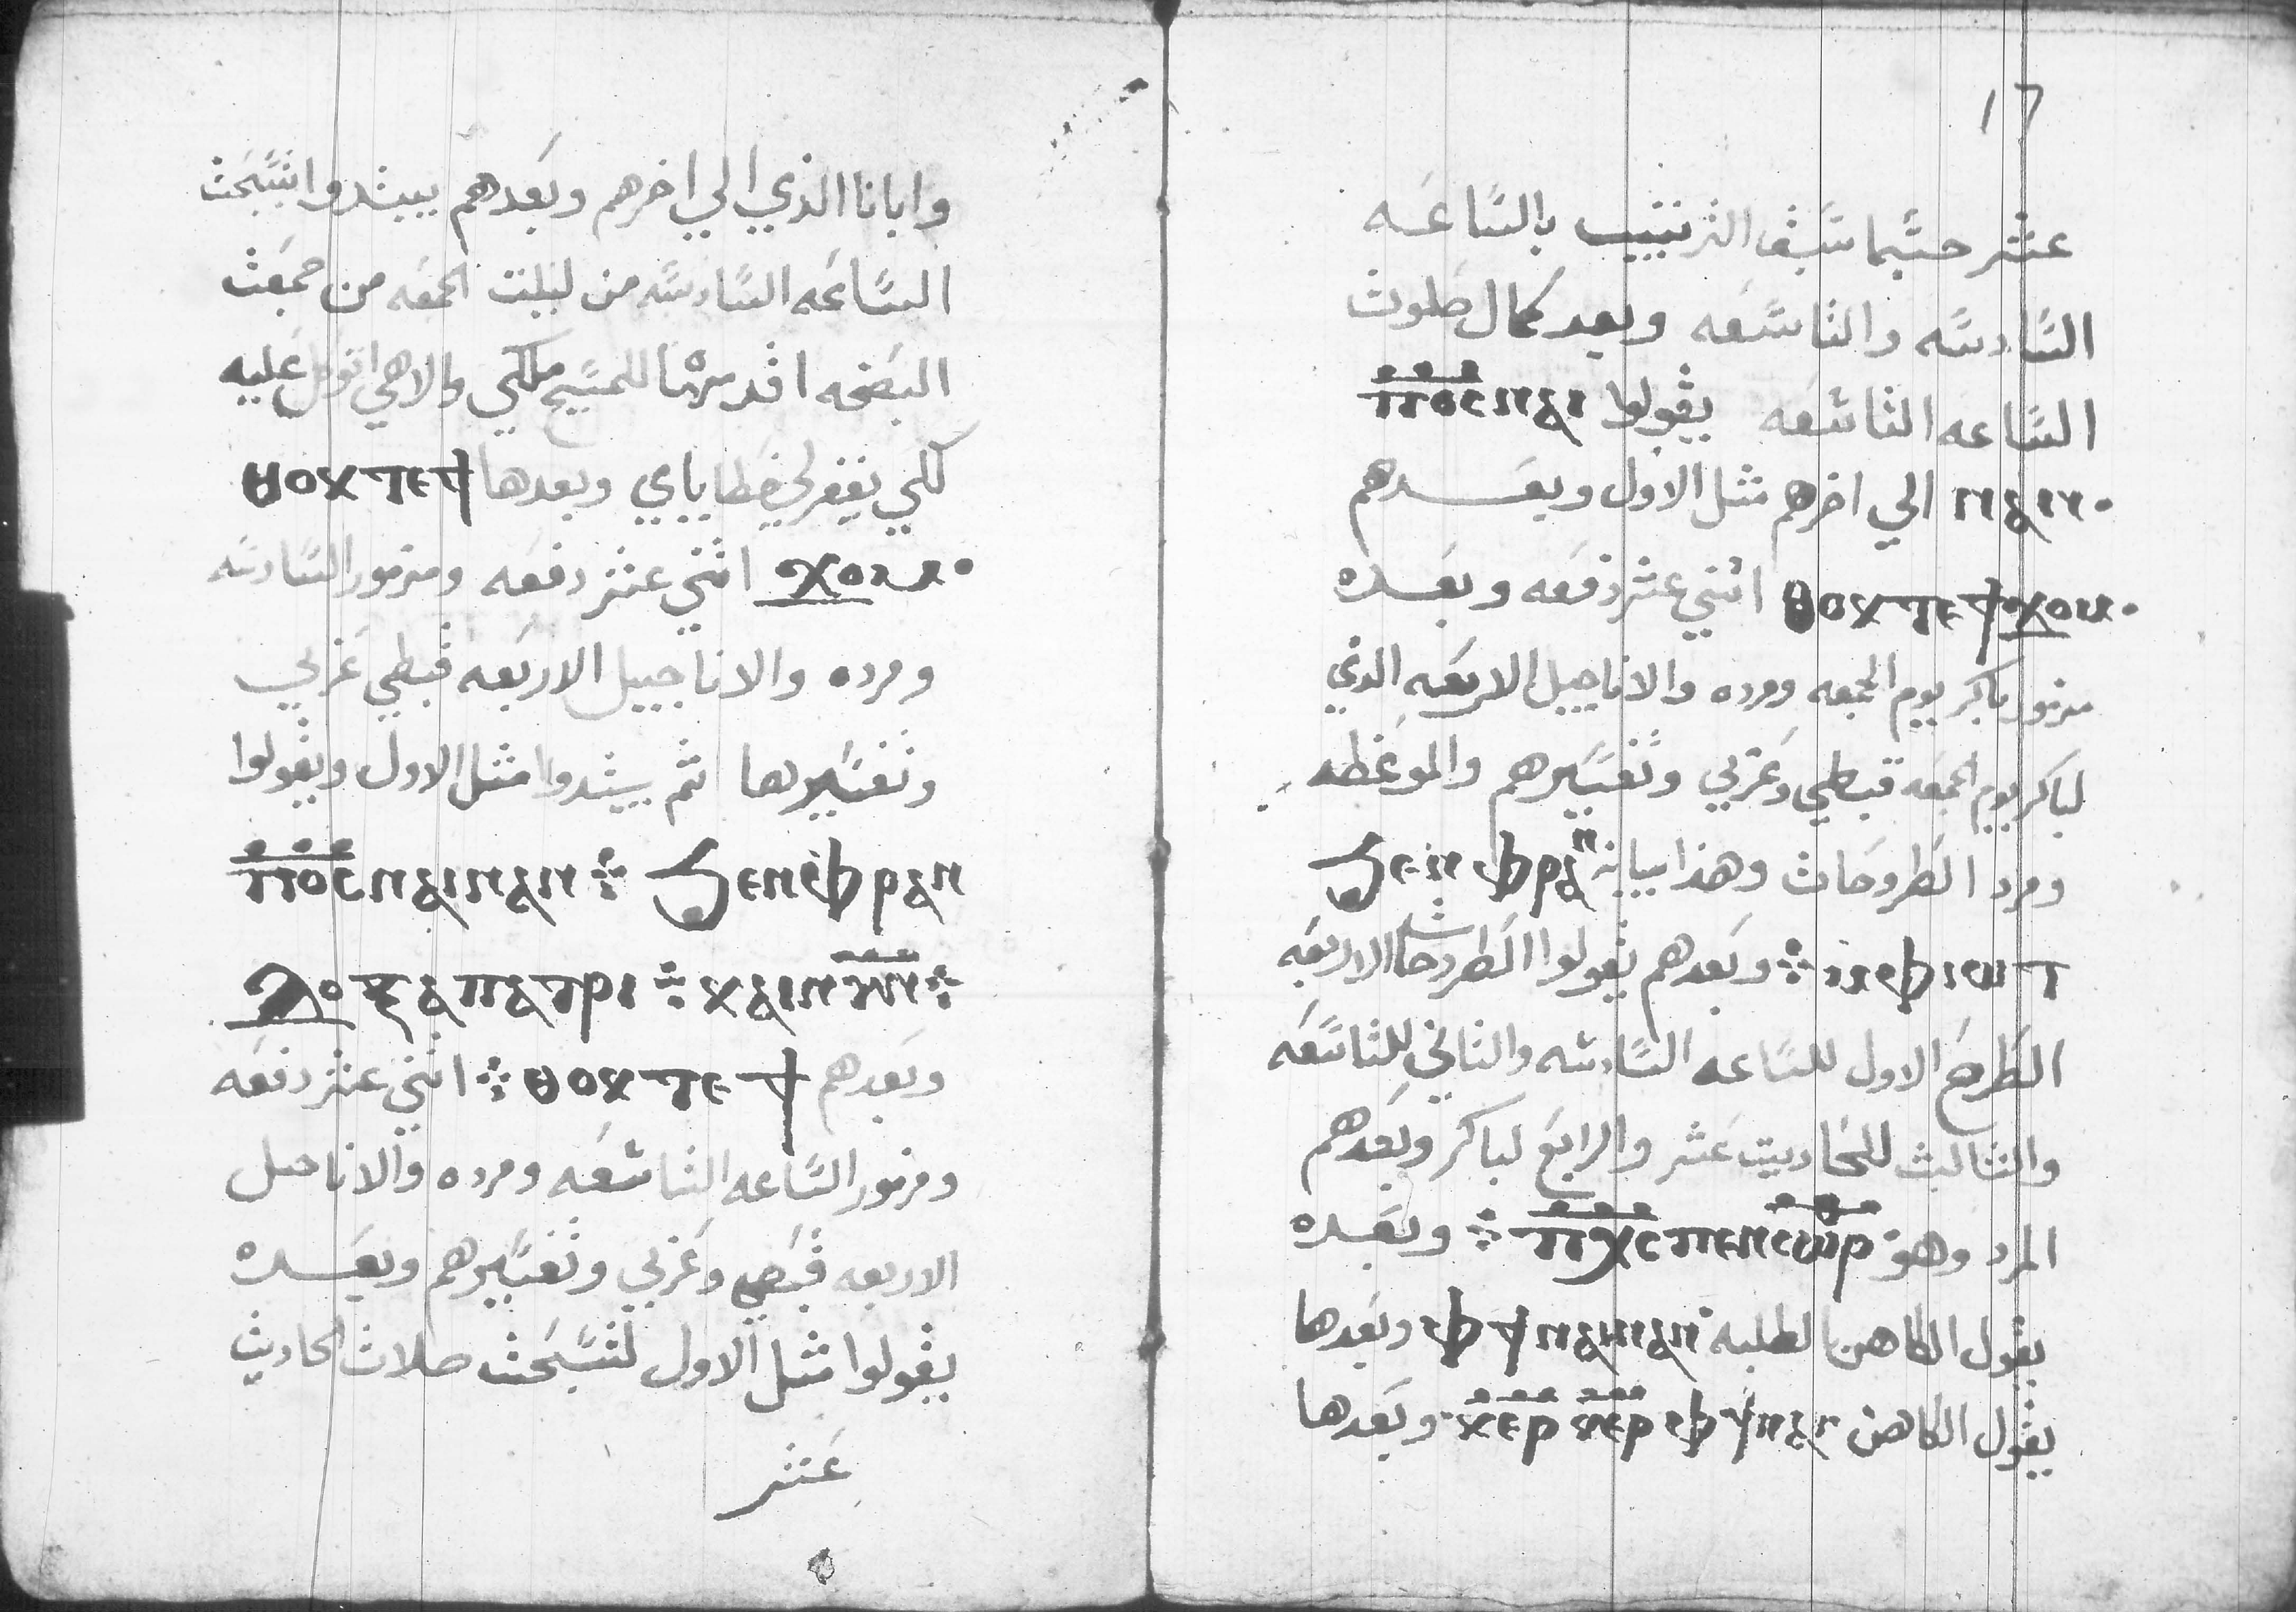 وابانا الذي الي اخرهم وبعدهم يبتدوا بتسبحت
الساعه السادسه من ليلت الجمعه من جمعت
البصخه اقدسها للمسيح ملكي والاهي اتوكل عليه
لكي يغفر لي خطاياي وبعدها ⲑⲱⲕⲧⲉϯ
ϫⲟⲙ اثني عشر دفعه ومزمور السادسه
ومرده والاناجيل الاربعه قبطي عربي
وتفسيرها ثم يبتدوا مثل الاول ويقولوا
ⲡⲟⲥ ⲛⲁⲓ ⲛⲁⲛ ⁘ ϧⲉⲛ ⲫⲣⲁⲛ
ⲇⲟⲝⲁ ⲡⲁⲧⲣⲓ ⁘ ⲕⲁⲓ ⲛⲩⲛ ⁘
وبعدهم ⲑⲟⲕⲧⲉϯ ⁘ اثني عشر دفعه
ومزمور الساعه التاسعه ومرده والاناجيل
الاربعه قبطي وعربي وتفسيرهم وبعده
يقولوا مثل الاول لتسبحت صلاة الحاديت
عشر
17
عشر حسبما سبق الترتيب بالساعه
السادسه والتاسعه وبعد كمال صلوت
الساعه التاسعه يقولوا ⲡⲟⲥ ⲛⲁⲓ
ⲛⲁⲛ الي اخرهم مثل الاول وبعدهم
ⲑⲟⲕⲧⲉϯϫⲟⲙ اثني عشر دفعه وبعده
مزمور باكر يوم الجمعه ومرده والاناجيل الاربعه الذي
لباكر يوم الجمعه قبطي وعربي وتفسيرهم والموعظه
ومرد الطروحات وهذا بيانه ϧⲉⲛ ⲫⲣⲁⲛ
ⲙⲫⲓⲱⲧ ⁘ وبعدهم يقولوا الطروحات الاربعه
الطرح الاول للساعه السادسه والثاني للتاسعه
والثالث للحاديت عشر والرابع لباكر وبعدهم
المرد وهو ⲡⲭⲥ ⲡⲉⲛⲥⲱⲣ ⁘ وبعده
يقول الكاهن الطلبه ⲫϯ ⲛⲁⲓ ⲛⲁⲛ وبعدها
يقول الكاهن ⲫϯ ⲛⲁⲓ ⲕⲉⲣ ⲕⲉⲣ وبعدها